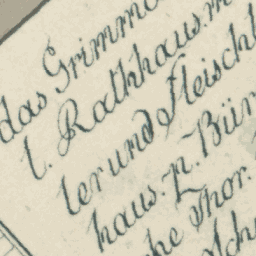 das Grimma
l. Rathhaus. m
ler und Fleischh
haus. n. Bür
che Thor.